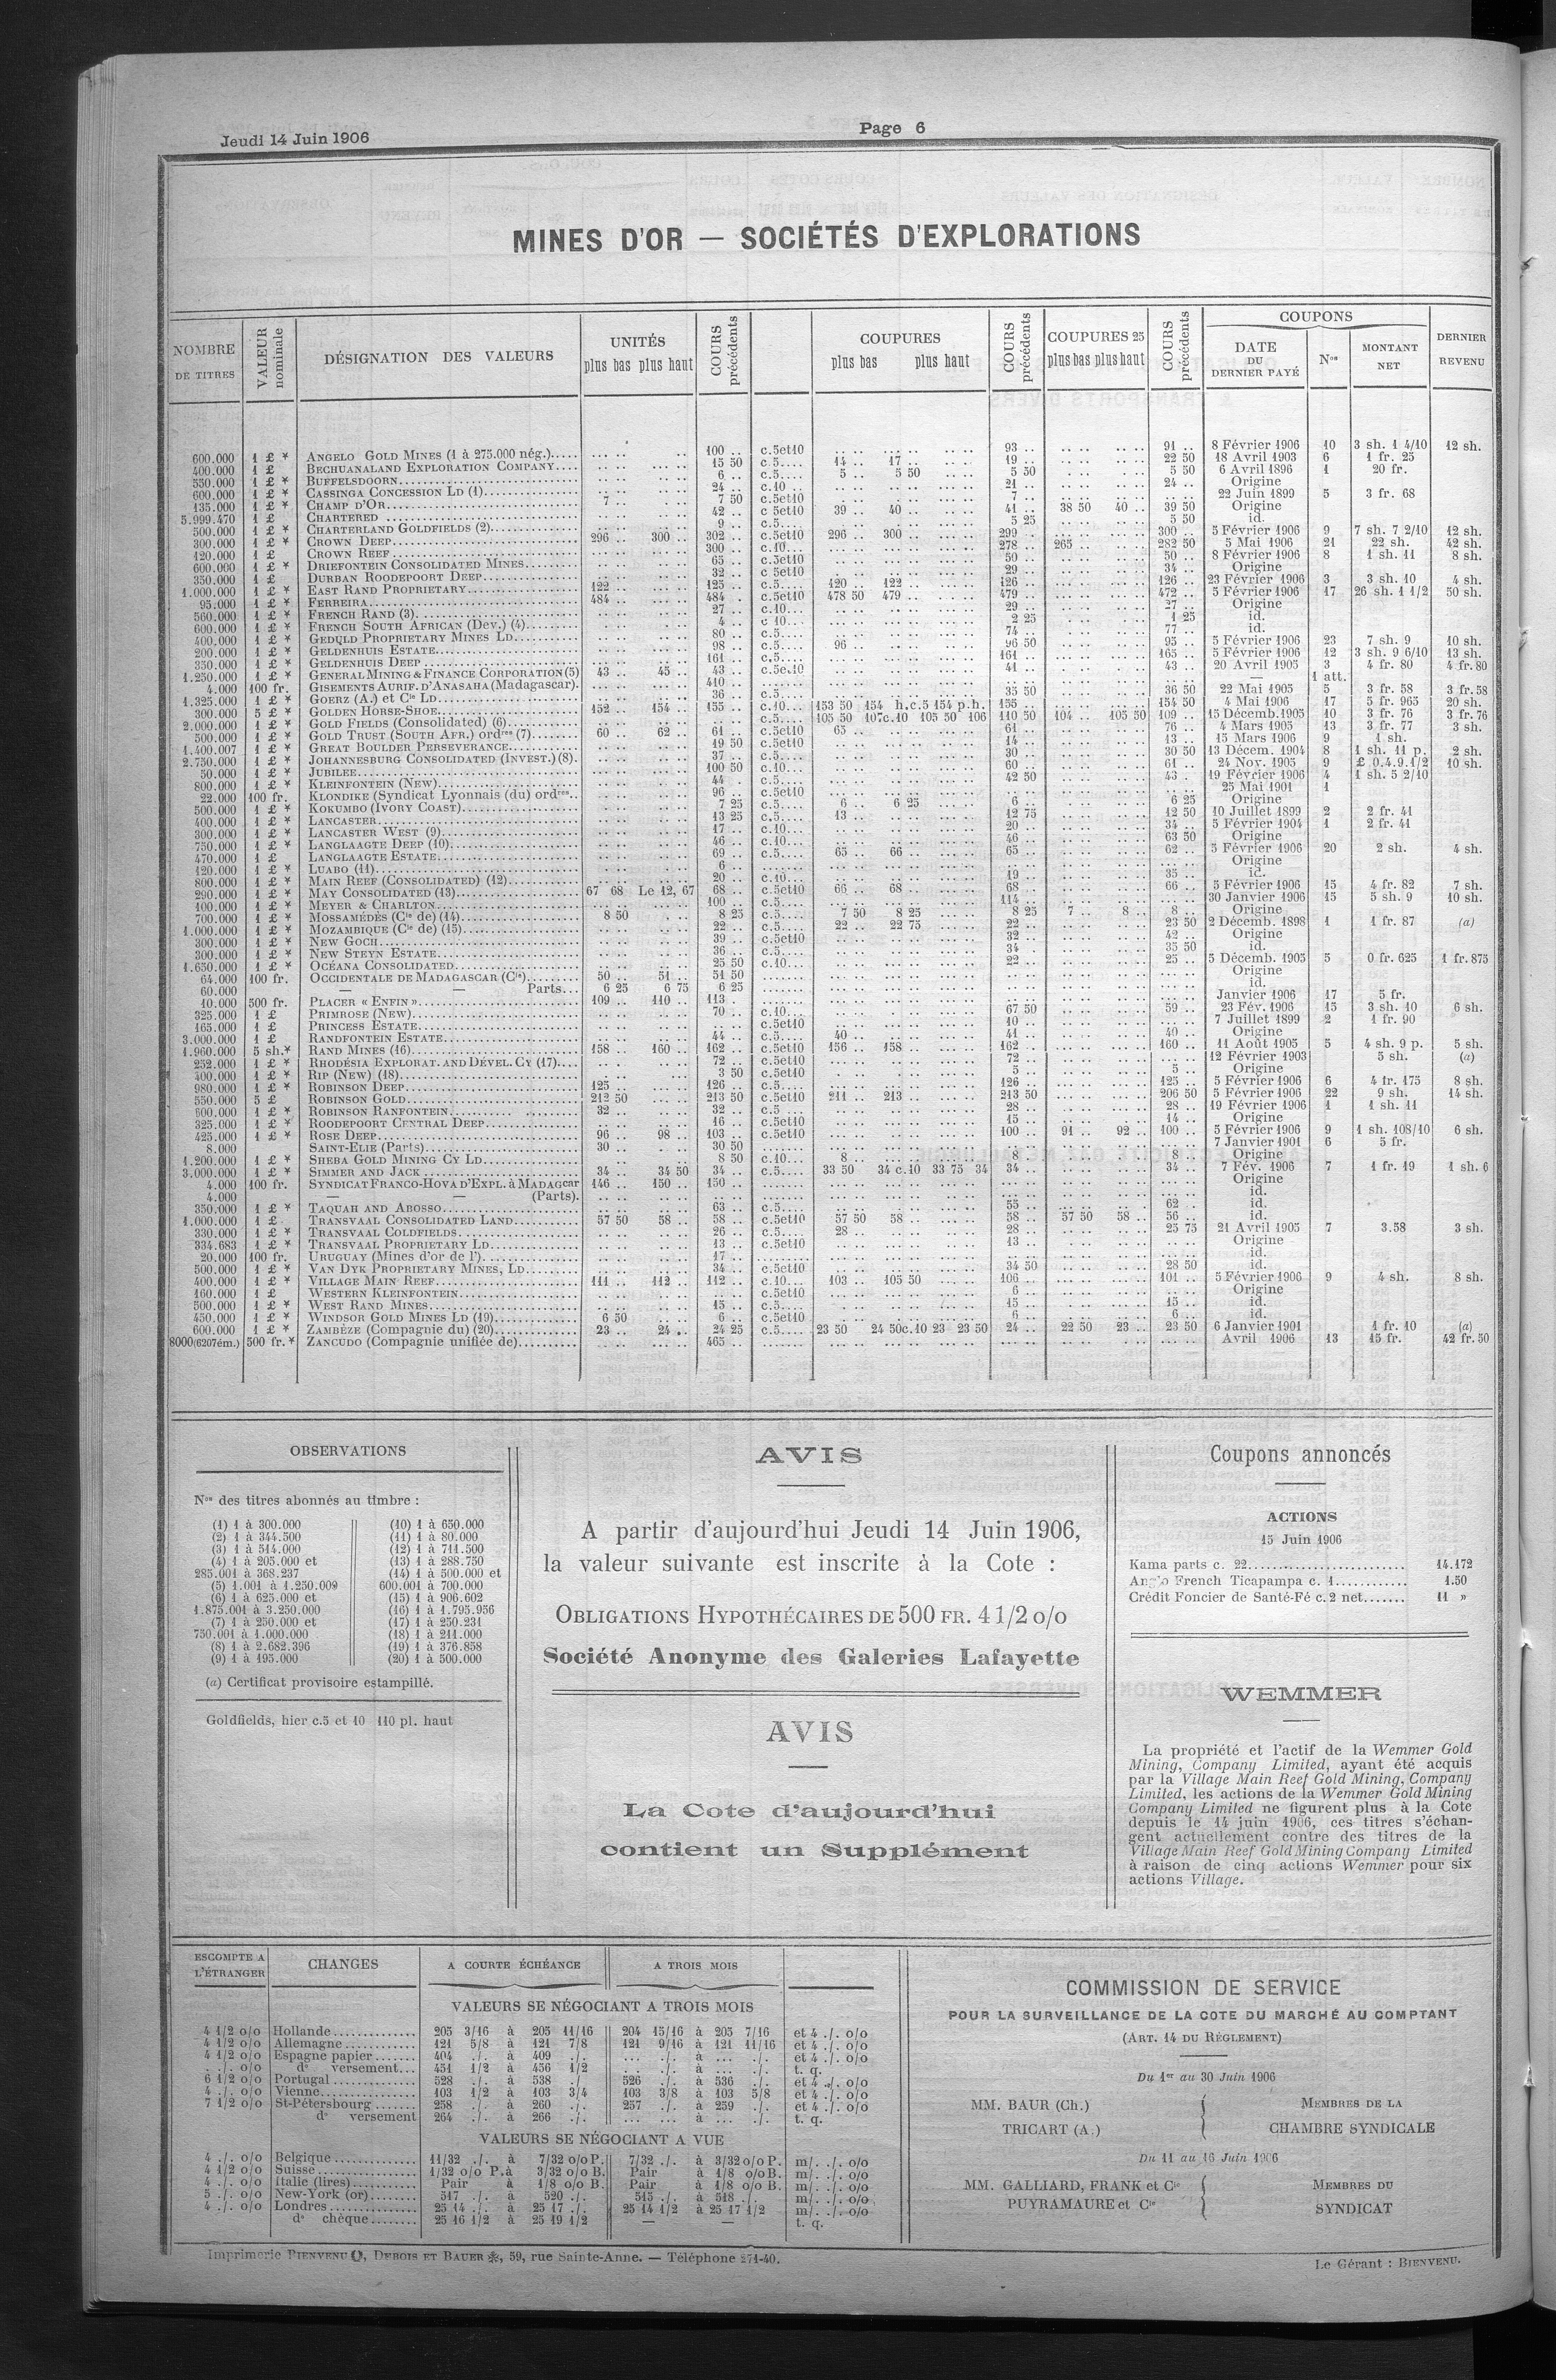 Jeudi 14 Juin 1906
Page 6
MINES D'OR — SOCIÉTÉS D'EXPLORATIONS
NOMBRE DE TITRES
VALEUR nominale
DÉSIGNATION DES VALEURS
UNITÉS
plus bas plus haut
COURS précédents
COUPURES
plus bas plus haut
COURS précédents
COUPURES 25
plus bas plus haut
COURS précédents
COUPONS
DATE DU DERNIER PAYÉ
Nos
MONTANT NET
DERNIER REVENU
600.000 1 £ * ANGELO GOLD MINES (1 à 275.000 nég.)..... 100 .. c.5et10 93 .. 91 .. 8 Février 1906 10 3 sh. 1 4/10 12 sh.
400.000 1 £ BECHUANALAND EXPLORATION COMPANY.... 15 50 c.5.... 14 .. 17 .. 19 .. 22 50 18 Avril 1903 6 1 fr. 25
550.000 1 £ * BUFFELSDOORN 6 .. c.5.... 5 .. 5 50 5 50 5 50 6 Avril 1896 1 20 fr.
600.000 1 £ * CASSINGA CONCESSION LD (1) 24 .. c.10 .. 21 .. 24 .. Origine
135.000 1 £ * CHAMP D'OR 7 .. 7 50 c.5et10 7 .. 22 Juin 1899 5 3 fr. 68
5.999.470 1 £ CHARTERED 42 .. c 5et10 39 .. 40 .. 41 .. 38 50 40 .. 39 50 Origine
500.000 1 £ * CHARTERLAND GOLDFIELDS (2) 9 .. c.5.... 5 25 5 50 id.
300.000 1 £ * CROWN DEEP 296 .. 300 .. 302 .. c.5et10 296 .. 300 .. 299 .. 300 .. 5 Février 1906 9 7 sh. 7 2/10 12 sh.
120.000 1 £ CROWN REEF 300 .. c.10... 278 .. 265 .. 282 50 5 Mai 1906 21 22 sh. 42 sh.
600.000 1 £ * DRIEFONTEIN CONSOLIDATED MINES 65 .. c 5et10 50 .. 50 .. 8 Février 1906 8 1 sh. 11 8 sh.
350.000 1 £ DURBAN ROODEPOORT DEEP 32 .. c 5et10 29 .. 34 .. Origine
1.000.000 1 £ * EAST RAND PROPRIETARY 122 .. 125 .. c.5.... 120 .. 122 .. 126 .. 126 .. 23 Février 1906 3 3 sh. 10 4 sh.
95.000 1 £ * FERREIRA 484 .. 484 . c.5et10 478 50 479 .. 479 .. 472 .. 5 Février 1906 17 26 sh. 1 1/2 50 sh.
560.000 1 £ * FRENCH RAND (3) 27 .. c.10... 29 .. 27 .. Origine
600.000 1 £ * FRENCH SOUTH AFRICAN (Dev.) (4) 4 .. c 10... 2 25 1 25 id.
400.000 1 £ * GEDULD PROPRIETARY MINES LD 80 .. c.5.... 74 .. 77 .. id.
200.000 1 £ * GELDENHUIS ESTATE 98 .. c.5.... 96 .. 96 50 95 .. 5 Février 1906 23 7 sh. 9 10 sh.
350.000 1 £ * GELDENHUIS DEEP 161 .. c.5.... 161 .. 165 .. 5 Février 1906 12 3 sh. 9 6/10 13 sh.
1.250.000 1 £ * GENERAL MINING & FINANCE CORPORATION (5) 43 .. 45 .. 43 .. c.5e.10 41 .. 43 .. 20 Avril 1905 3 4 fr. 80 4 fr. 80
4.000 100 fr. GISEMENTS AURIF. D'ANASAHA (Madagascar). 410 .. — 1 att.
1.325.000 1 £ * GOERZ (A.) et Cie LD 36 .. c.5... 35 50 36 50 22 Mai 1905 5 3 fr. 58 3 fr. 58
300.000 5 £ * GOLDEN HORSE-SHOE 152 .. 154 .. 155 .. c.10... 153 50 154 h.c.5 154 p.h. 155 .. 154 50 4 Mai 1906 17 5 fr. 965 20 sh.
2.000.000 1 £ * GOLD FIELDS (Consolidated) (6) c.5.... 105 50 107c.10 105 50 106 110 50 104 .. 105 50 109 .. 15 Décemb. 1905 10 3 fr. 76 3 fr. 76
500.000 1 £ * GOLD TRUST (SOUTH AFR.) ordres (7) 60 .. 62 .. 61 .. c.5et10 65 .. 61 .. 76 .. 4 Mars 1905 13 3 fr. 77 3 sh.
1.400.007 1 £ * GREAT BOULDER PERSEVERANCE 19 50 c.5et10 14 .. 13 .. 15 Mars 1906 9 1 sh.
2.750.000 1 £ * JOHANNESBURG CONSOLIDATED (INVEST.) (8). 37 .. c.5.... 30 .. 30 50 13 Décem. 1904 8 1 sh. 11 p. 2 sh.
50.000 1 £ * JUBILEE 100 50 c.10... 60 .. 61 .. 24 Nov. 1905 9 £ 0.4.9.1/2 10 sh.
800.000 1 £ * KLEINFONTEIN (NEW) 44 . c.5.... 42 50 43 . 19 Février 1906 4 1 sh. 5 2/10
22.000 100 fr. KLONDIKE (Syndicat Lyonnais (du) ordres.. 96 .. c.5et10 25 Mai 1901 1
500.000 1 £ * KOKUMBO (IVORY COAST) 7 25 c.5.... 6 .. 6 25 6 .. 6 25 Origine
400.000 1 £ * LANCASTER 13 25 c.5.... 13 .. 12 75 12 50 10 Juillet 1899 2 2 fr. 41
300.000 1 £ * LANCASTER WEST (9) 17 .. c.10... 20 .. 34 .. 5 Février 1904 1 2 fr. 41
750.000 1 £ * LANGLAAGTE DEEP (10) 46 .. c.10... 46 .. 63 50 Origine
470.000 1 £ LANGLAAGTE ESTATE 69 .. c.5.... 65 .. 66 .. 65 .. 62 .. 5 Février 1906 20 2 sh. 4 sh.
120.000 1 £ * LUABO (11) 6 .. Origine
800.000 1 £ * MAIN REEF (CONSOLIDATED) (12) 20 .. c.10... 19 .. 35 .. id.
290.000 1 £ * MAY CONSOLIDATED (13) 67 68 Le 12, 67 68 .. c.5et10 66 .. 68 .. 68 .. 66 .. 5 Février 1906 15 4 fr. 82 7 sh.
100.000 1 £ * MEYER & CHARLTON 100 .. c.5.... 114 .. 30 Janvier 1906 15 5 sh. 9 10 sh.
700.000 1 £ * MOSSAMÉDÈS (Cie de) (14) 8 50 8 25 c.5.... 7 50 8 25 8 25 7 .. 8 .. 8 .. Origine
1.000.000 1 £ * MOZAMBIQUE (Cie de) (15) 22 .. c.5.... 22 .. 22 75 22 .. 23 50 2 Décemb. 1898 1 1 fr. 87 (a)
300.000 1 £ * NEW GOCH 39 .. c.5et10 32 .. 42 .. Origine
300.000 1 £ * NEW STEYN ESTATE 36 .. c.5.... 34 35 50 id.
1.650.000 1 £ * OCÉANA CONSOLIDATED 25 50 c.10... 22 .. 25 .. 5 Décemb. 1905 5 0 fr. 625 1 fr. 875
64.000 100 fr. OCCIDENTALE DE MADAGASCAR (Cie) 50 .. 51 .. 51 50 Origine
60.000 — — Parts... 6 25 6 75 6 25 id.
10.000 500 fr. PLACER « ENFIN » 109 .. 110 .. 113 . Janvier 1906 17 5 fr.
325.000 1 £ PRIMROSE (NEW) 70 .. c.10... 67 50 59 .. 23 Fév. 1906 15 3 sh. 10 6 sh.
165.000 1 £ PRINCESS ESTATE c.5et10 10 .. 7 Juillet 1899 2 1 fr. 90
3.000.000 1 £ RANDFONTEIN ESTATE 44 .. c.5.... 40 .. 41 .. 40 .. Origine
1.960.000 5 sh.* RAND MINES (16) 158 .. 160 .. 162 .. c.5et10 156 .. 158 .. 162 .. 160 .. 11 Août 1905 5 4 sh. 9 p. 5 sh.
252.000 1 £ * RHODÉSIA EXPLORAT. AND DÉVEL. CY (17).... 72 .. c.5et10 72 .. 12 Février 1903 5 sh. (a)
400.000 1 £ * RIP (NEW) (18) 3 50 c.5et10 5 .. 5 .. Origine
980.000 1 £ * ROBINSON DEEP 125 .. 126 .. c.5.... 126 .. 125 .. 5 Février 1906 6 4 fr. 175 8 sh.
550.000 5 £ ROBINSON GOLD 212 50 213 50 c.5et10 211 .. 213 .. 213 50 206 50 5 Février 1906 22 9 sh. 14 sh.
600.000 1 £ * ROBINSON RANFONTEIN 32 .. 32 .. c.5 ... 28 .. 28 .. 19 Février 1906 1 1 sh. 11
325.000 1 £ * ROODEPOORT CENTRAL DEEP 16 .. c.5et10 15 .. 14 .. Origine
425.000 1 £ * ROSE DEEP 96 .. 98 .. 103 .. c.5et10 100 .. 91 .. 92 .. 100 .. 5 Février 1906 9 1 sh. 108/10 6 sh.
8.000 SAINT-ELIE (Parts) 30 .. 30 50 7 Janvier 1901 6 5 fr.
1.200.000 1 £ * SHEBA GOLD MINING CY LD 8 50 c.10... 8 .. 8 .. 8 .. Origine
3.000.000 1 £ * SIMMER AND JACK 34 .. 34 50 34 .. c.5.... 33 50 34 c.10 33 75 34 34 .. 34 .. 7 Fév. 1906 7 1 fr. 19 1 sh. 6
4.000 100 fr. SYNDICAT FRANCO-HOVA D'EXPL. à MADAGcar 146 .. 150 .. 150 .. Origine
4.000 — — (Parts). id.
350.000 1 £ * TAQUAH AND ABOSSO 63 .. c.5.... 55 .. 62 .. id.
1.000.000 1 £ TRANSVAAL CONSOLIDATED LAND 57 50 58 .. 58 .. c.5et10 57 50 58 .. 58 .. 57 50 58 .. 56 .. id.
330.000 1 £ * TRANSVAAL COLDFIELDS 26 .. c.5.... 28 .. 28 .. 25 75 21 Avril 1905 7 3.58 3 sh.
334.683 1 £ * TRANSVAAL PROPRIETARY LD 13 .. c.5et10 13 .. Origine
20.000 100 fr. URUGUAY (Mines d'or de l') 17 .. id.
500.000 1 £ * VAN DYK PROPRIETARY MINES, LD 34 .. c.5et10 34 50 28 50 id.
400.000 1 £ * VILLAGE MAIN REEF 111 .. 112 .. 112 .. c.10... 103 .. 105 50 106 .. 101 .. 5 Février 1906 9 4 sh. 8 sh.
160.000 1 £ WESTERN KLEINFONTEIN c.5et10 6 .. Origine
500.000 1 £ * WEST RAND MINES 15 .. c.5.... 15 .. 15 .. id.
450.000 1 £ * WINDSOR GOLD MINES LD (19) 6 50 6 .. c.5et10 6 .. 6 .. id.
600.000 1 £ * ZAMBÈZE (Compagnie du) (20) 23 .. 24 .. 24 25 c.5.... 23 50 24 50c.10 23 23 50 24 .. 22 50 23 .. 23 50 6 Janvier 1901 1 fr. 10 (a)
8000(6207ém.) 500 fr.* ZANCUDO (Compagnie unifiée de) 465 .. Avril 1906 13 15 fr. 42 fr. 50
OBSERVATIONS
Nos des titres abonnés au timbre :
(1) 1 à 300.000
(2) 1 à 344.500
(3) 1 à 514.000
(4) 1 à 205.000 et
285.001 à 368.237
(5) 1.001 à 1.250.009
(6) 1 à 625.000 et
1.875.001 à 3.250.000
(7) 1 à 250.000 et
750.001 à 1.000.000
(8) 1 à 2.682.396
(9) 1 à 195.000
(10) 1 à 650.000
(11) 1 à 80.000
(12) 1 à 711.500
(13) 1 à 288.750
(14) 1 à 500.000 et
600.001 à 700.000
(15) 1 à 906.602
(16) 1 à 1.795.956
(17) 1 à 250.231
(18) 1 à 211.000
(19) 1 à 376.858
(20) 1 à 500.000
(a) Certificat provisoire estampillé.
Goldfields, hier c.5 et 10 110 pl. haut
AVIS
A partir d'aujourd'hui Jeudi 14 Juin 1906,
la valeur suivante est inscrite à la Cote :
OBLIGATIONS HYPOTHÉCAIRES DE 500 FR. 4 1/2 o/o
Société Anonyme des Galeries Lafayette
AVIS
La Cote d'aujourd'hui
contient un Supplément
Coupons annoncés
ACTIONS
15 Juin 1906
Kama parts c. 22 14.172
Anglo French Ticapampa c. 1 1.50
Crédit Foncier de Santé-Fé c. 2 net 11 »
WEMMER
La propriété et l'actif de la Wemmer Gold
Mining, Company Limited, ayant été acquis
par la Village Main Reef Gold Mining, Company
Limited, les actions de la Wemmer Gold Mining
Company Limited ne figurent plus à la Cote
depuis le 14 juin 1906, ces titres s'échan-
gent actuellement contre des titres de la
Village Main Reef Gold Mining Company Limited
à raison de cinq actions Wemmer pour six
actions Village.
ESCOMPTE A L'ÉTRANGER
CHANGES
A COURTE ÉCHÉANCE
A TROIS MOIS
VALEURS SE NÉGOCIANT A TROIS MOIS
4 1/2 o/o Hollande 205 3/16 à 205 11/16 204 15/16 à 205 7/16 et 4 ./. o/o
4 1/2 o/o Allemagne 121 5/8 à 121 7/8 121 9/16 à 121 11/16 et 4 ./. o/o
4 1/2 o/o Espagne papier 404 ./. à 409 ./. ... ./. à ... ./. et 4 ./. o/o
. ./. o/o do versement... 451 1/2 à 456 1/2 ... ./. à ... ./. t. q.
6 1/2 o/o Portugal 528 ./. à 538 ./ 526 ./. à 536 ./. et 4 ./. o/o
4 ./. o/o Vienne 103 1/2 à 103 3/4 103 3/8 à 103 5/8 et 4 ./. o/o
7 1/2 o/o St-Pétersbourg 258 ./. à 260 ./. 257 ./. à 259 ./. et 4 ./. o/o
do versement 264 ./. à 266 ./. ... ... à ... ./. t. q.
VALEURS SE NÉGOCIANT A VUE
4 ./. o/o Belgique 11/32 ./. à 7/32 o/o P. 7/32 ./. à 3/32 o/o P. m/. ./. o/o
4 1/2 o/o Suisse 1/32 o/o P. à 3/32 o/o B. Pair à 1/8 o/o B. m/. ./. o/o
4 ./. o/o Italie (lires) Pair à 1/8 o/o B. Pair à 1/8 o/o B. m/. ./. o/o
5 ./. o/o New-York (or) 517 ./. à 520 ./. 515 ./. à 518 ./. m/. ./. o/o
4 ./. o/o Londres 25 14 ./. à 25 17 ./. 25 14 1/2 à 25 17 1/2 m/. ./. o/o
do chèque 25 16 1/2 à 25 19 1/2 — — t. q.
COMMISSION DE SERVICE
POUR LA SURVEILLANCE DE LA COTE DU MARCHÉ AU COMPTANT
(ART. 14 DU RÈGLEMENT)
Du 1er au 30 Juin 1906
MM. BAUR (Ch.)
TRICART (A.)
MEMBRES DE LA
CHAMBRE SYNDICALE
Du 11 au 16 Juin 1906
MM. GALLIARD, FRANK et Cie
PUYRAMAURE et Cie
MEMBRES DU
SYNDICAT
Imprimerie BIENVENU, DEBOIS ET BAUER, 59, rue Sainte-Anne. — Téléphone 271-40.
Le Gérant : BIENVENU.